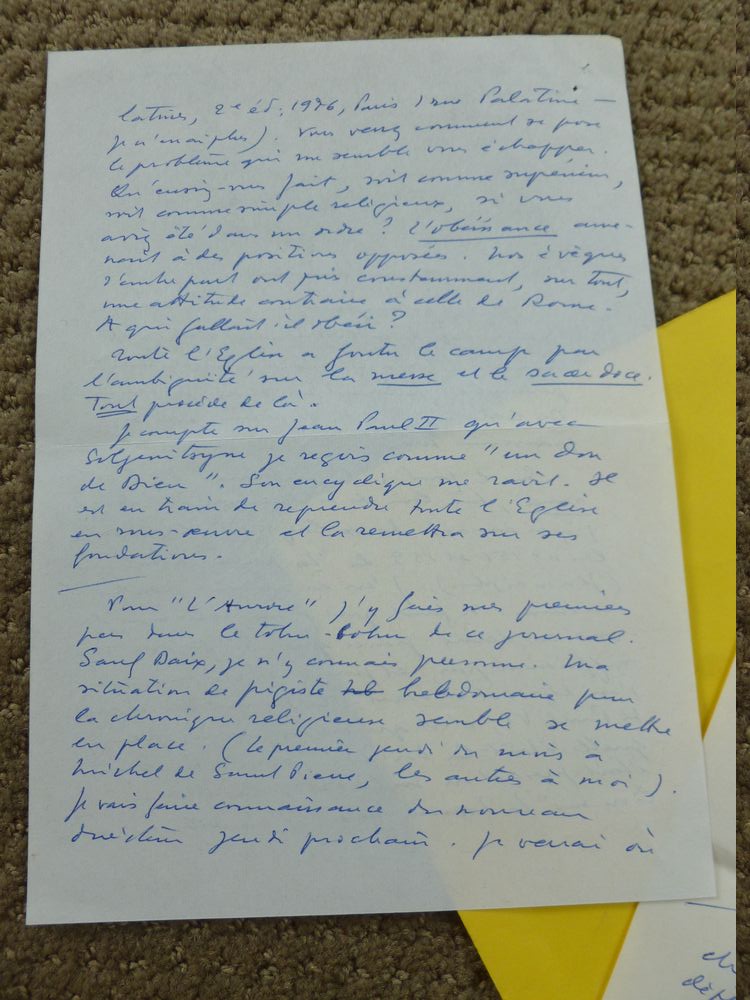 latines, 2e éd., 1976, Paris, 1 rue Palatine —
je n'en ai plus). Vous verrez comment se pose
le problème qui me semble vous échapper.
Qu'eussiez-vous fait, soit comme supérieur,
soit comme simple religieux, si vous
aviez été dans un ordre ? L'obéissance ame-
nait à des positions opposées. Nos évêques
d'autre part ont pris constamment, sur tout,
une attitude contraire à celle de Rome.
A qui fallait-il obéir ?
Toute l'Eglise a foutu le camp par
l'ambiguïté sur la messe et le sacerdoce.
Tout procède de là.
Je compte sur Jean Paul II qu'avec
Soljenitsyne je reçois comme "un don
de Dieu". Son encyclique me ravit. Il
est en train de reprendre toute l'Eglise
en sous-œuvre et la remettra sur ses
fondations.
Pour "L'Aurore" j'y fais mes premiers
pas dans le tohu-bohu de ce journal.
Sauf Daix, je n'y connais personne. Ma
situation de pigiste hebdomadaire pour
la chronique religieuse semble se mettre
en place. (Le premier jeudi du mois à
Michel de Saint Pierre, les autres à moi).
Je vais faire connaissance du nouveau
directeur jeudi prochain. Je verrai où